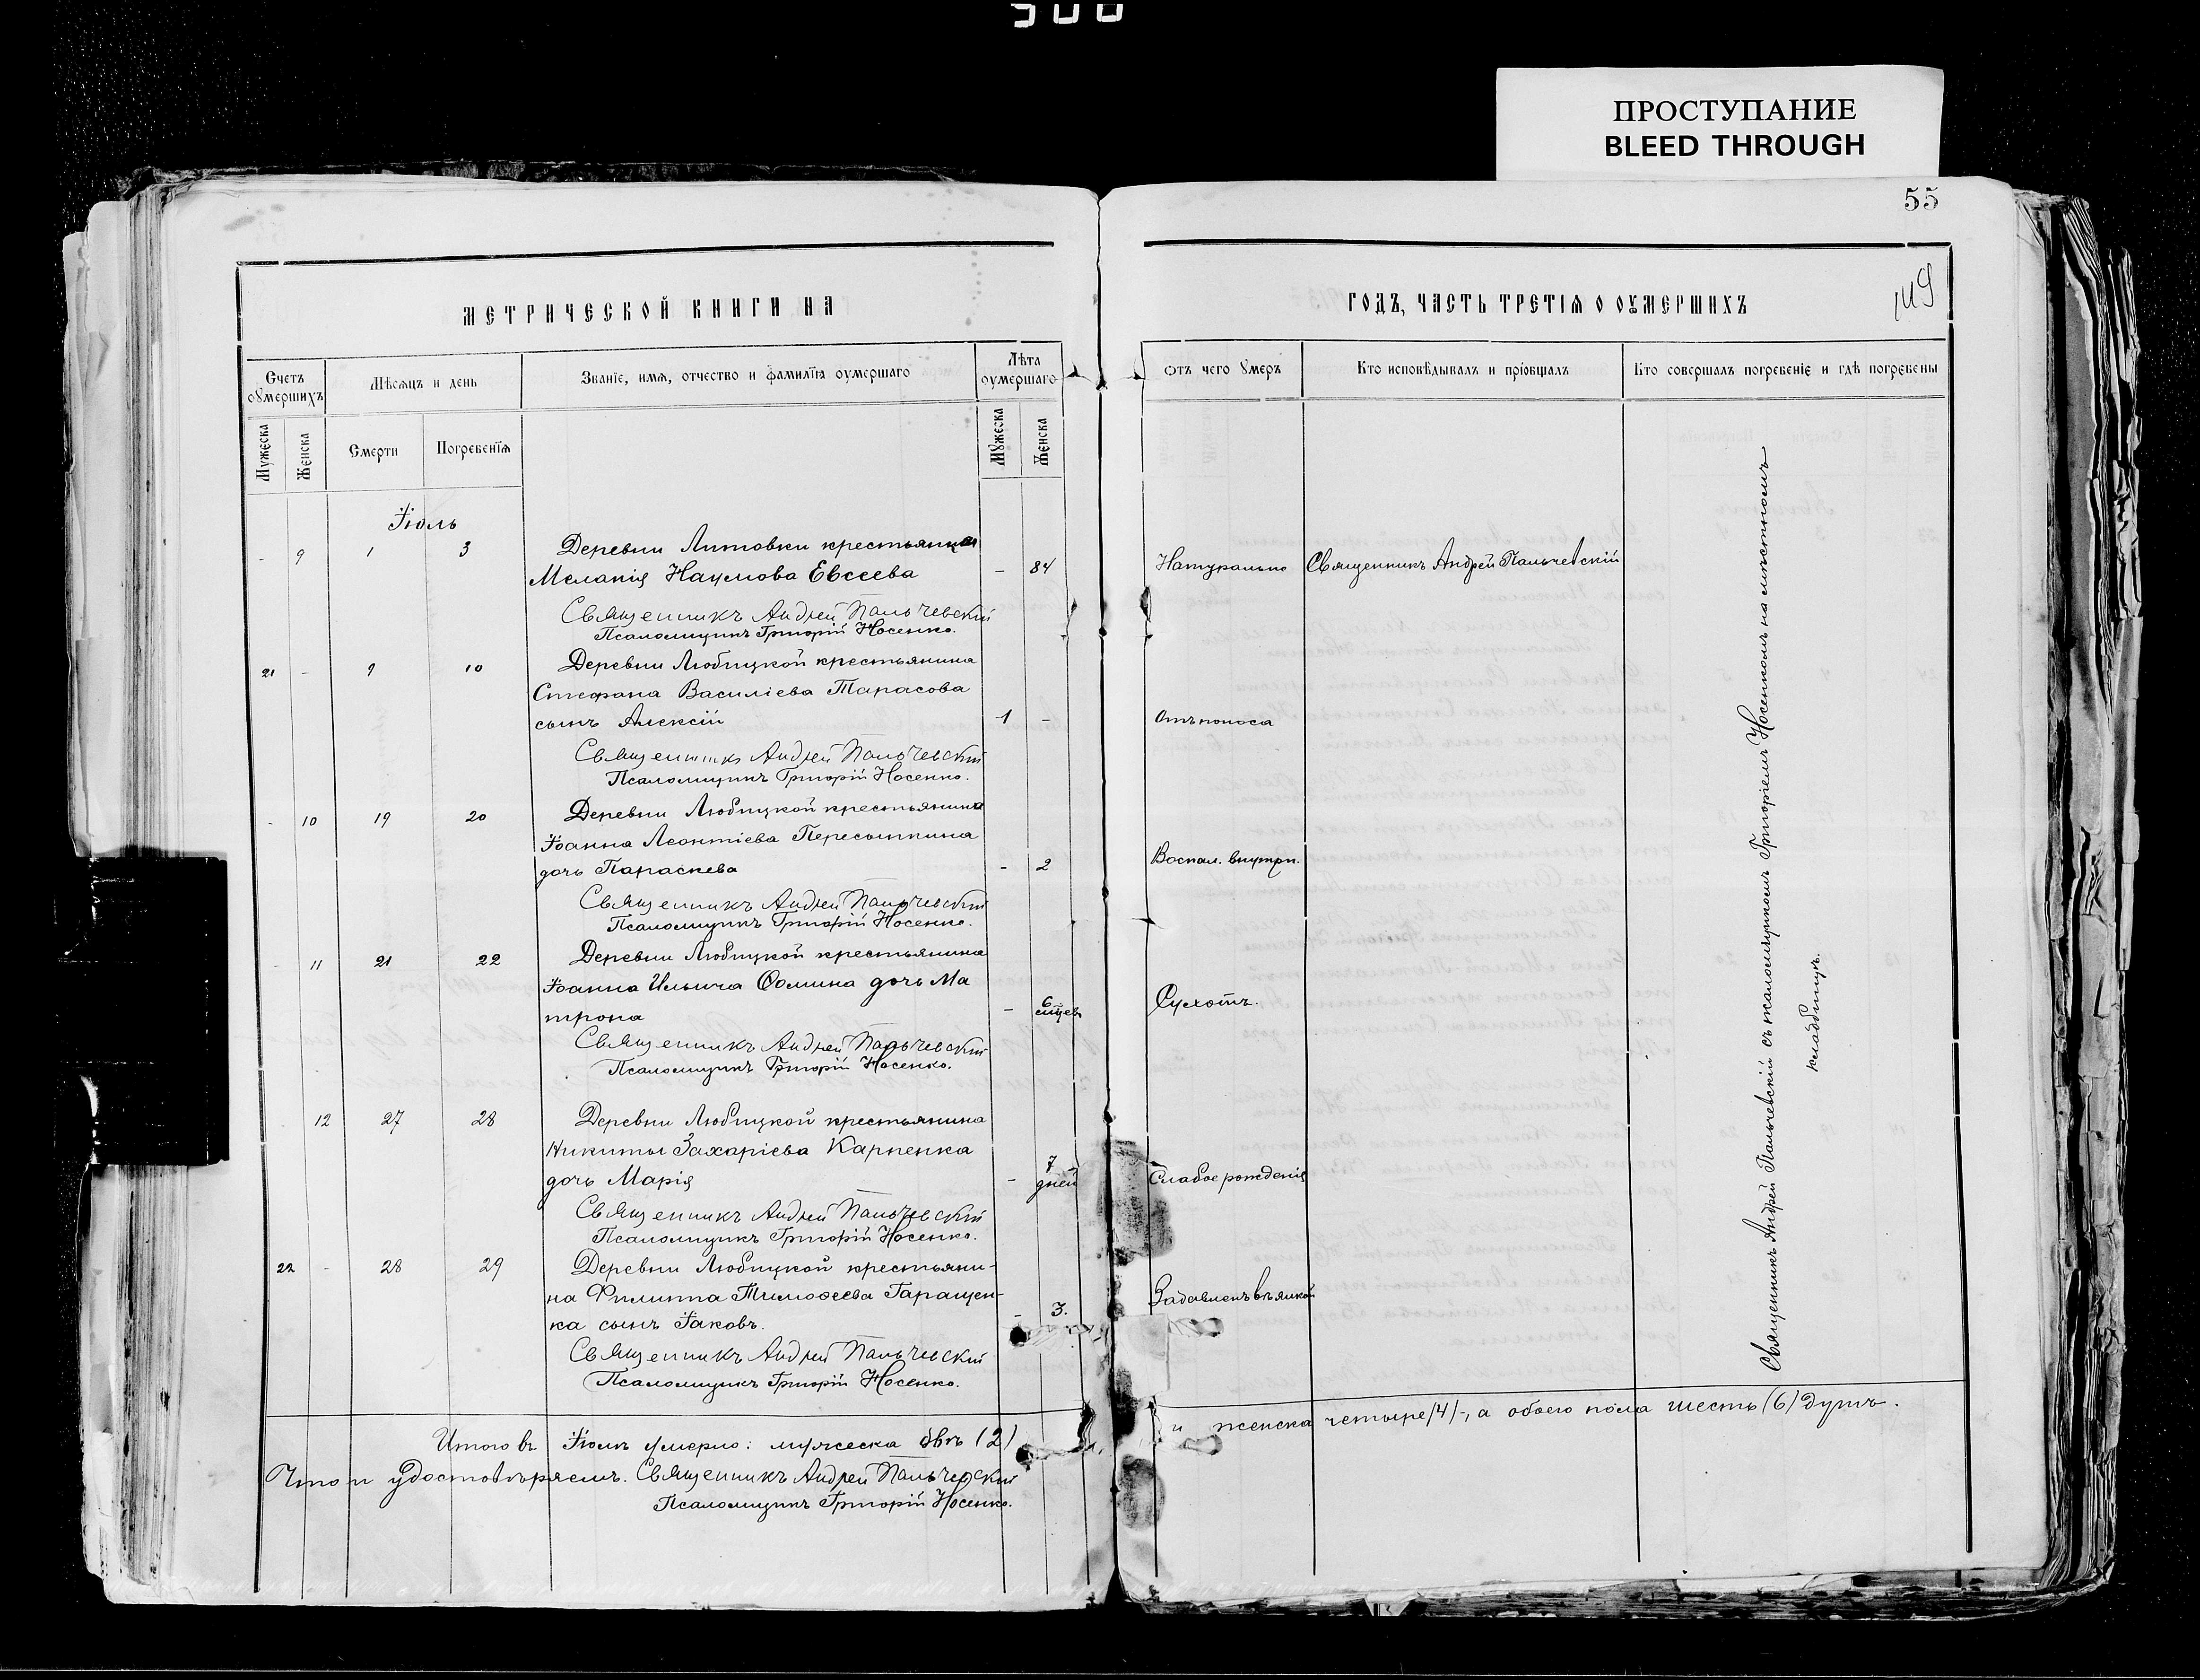 ПРОСТУПАНИЕ
BLEED THROUGH
55
149
МЕТРИЧЕСКОЙ КНИГИ НА
Счетъ оумершихъ
Мѣсѧцъ и день
Званіе, имѧ, отчество и фамиліѧ оумершаго
Лѣта оумершаго
Мужеска
Женска
Смерти
Погребеніѧ
Мꙋжеска
Женска
Іюль
- 9 1 3 Деревни Литовки крестьянка
Меланія Наумова Евсеева - 84
Священникъ Андрей Пальчевскій
Псаломщикъ Григорій Носенко.
21 - 9 10 Деревни Любицкой крестьянина
Стефана Василіева Тарасова
сынъ Алексій 1 -
Священникъ Андрей Пальчевскій
Псаломщикъ Григорій Носенко.
- 10 19 20 Деревни Любицкой крестьянина
Іоанна Леонтіева Пересыпкина
дочь Параскева - 2
Священникъ Андрей Пальчевскій
Псаломщикъ Григорій Носенко.
- 11 21 22 Деревни Любицкой крестьянина
Іоанна Ильича Ѳомина дочь Ма
трона - 6
Священникъ Андрей Пальчевскій
Псаломщикъ Григорій Носенко.
12 27 28 Деревни Любицкой крестьянина
Никиты Захаріева Карпенка
дочь Марія - 7 дней
Священникъ Андрей Пальчевскій
Псаломщикъ Григорій Носенко.
22 - 28 29 Деревни Любицкой крестьяни-
на Филиппа Тимоѳеева Гаращен-
ка сынъ Іаковъ. - 3.
Священникъ Андрей Пальчевскій
Псаломщикъ Григорій Носенко.
Итого въ Іюлѣ умерло: мужеска двѣ (2)
Что и удостовѣряемъ. Священникъ Андрей Пальчевскій
Псаломщикъ Григорій Носенко.
ГОДЪ, ЧАСТЬ ТРЕТІѦ О ОУМЕРШИХЪ
Ѿтъ чего ꙋмеръ
Кто исповѣдывалъ и пріобщалъ
Кто совершалъ погребеніе и гдѣ погребены
Натурально Священникъ Андрей Пальчевскій
Отъ поноса
Воспал. внутрн.
Сухотъ.
Слабое рожденія
Задавленъ
Священникъ Андрей Пальчевскій съ псаломщикомъ Григоріемъ Носенкомъ на мѣстномъ
кладбищѣ.
и женска четыре (4)-, а обоего пола шесть (6) душъ.